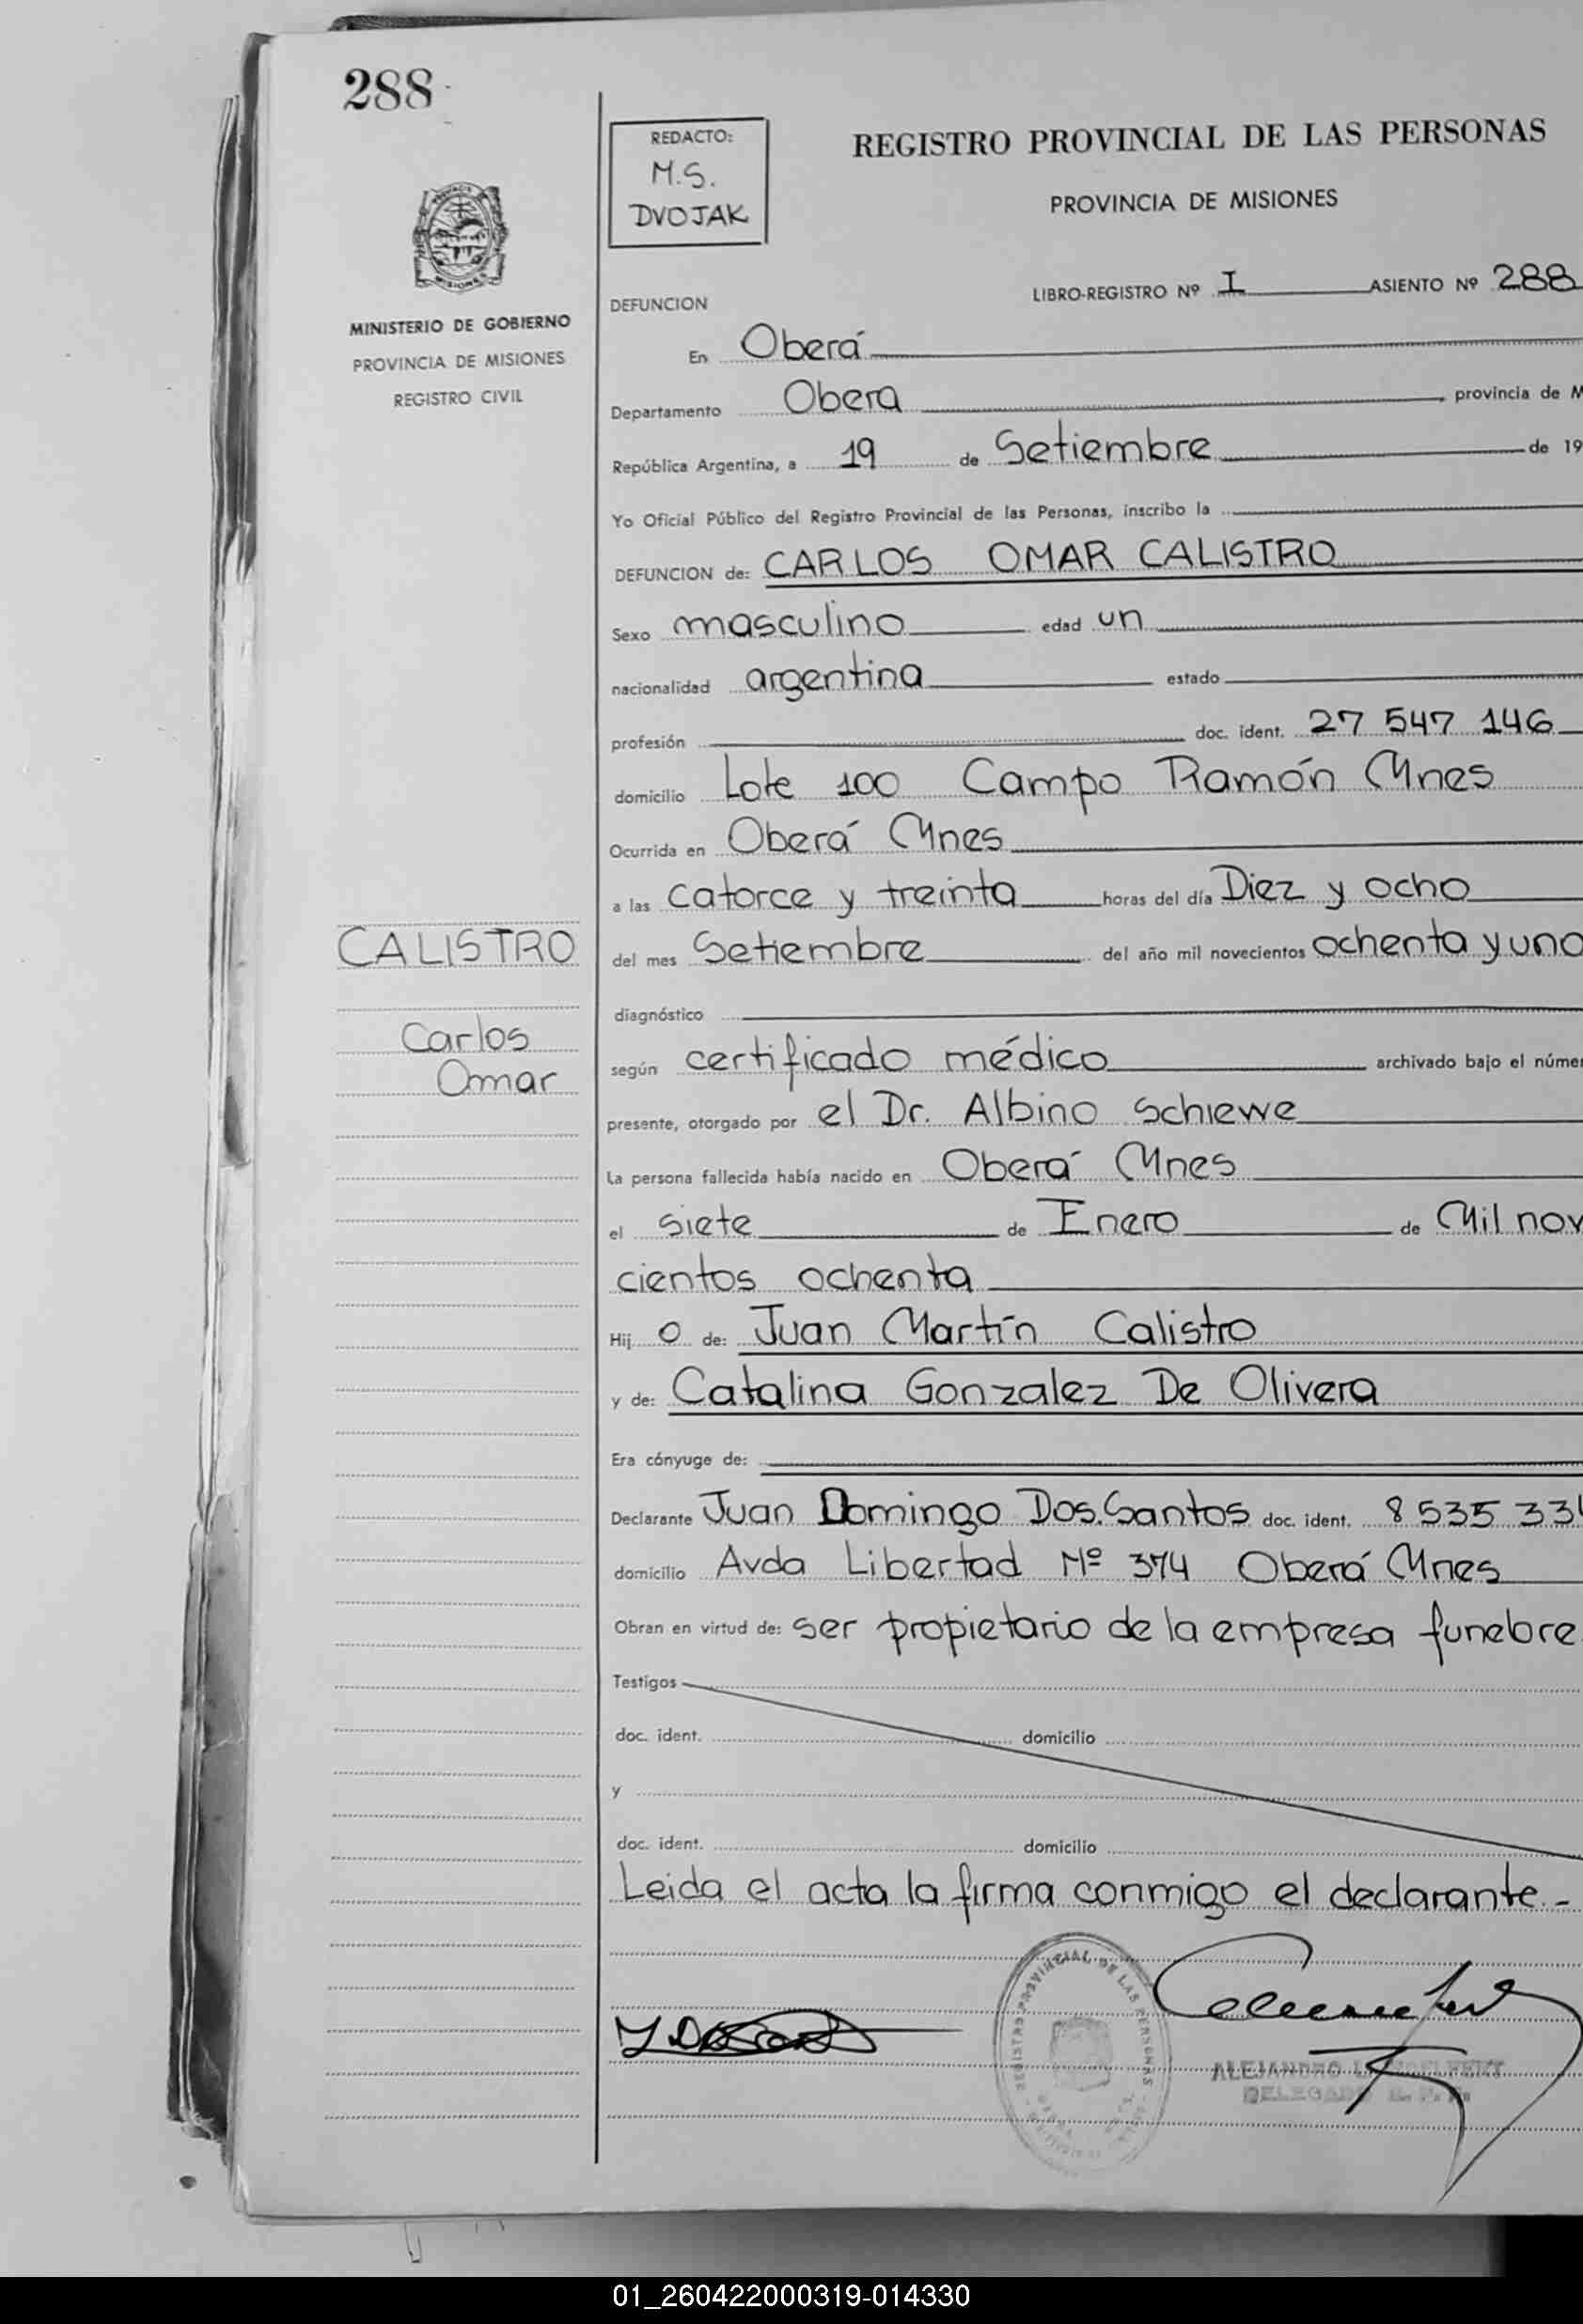 288
REDACTO:
M.S.
DVOJAK
REGISTRO PROVINCIAL DE LAS PERSONAS
PROVINCIA DE MISIONES
MINISTERIO DE GOBIERNO
PROVINCIA DE MISIONES
REGISTRO CIVIL
LIBRO-REGISTRO Nº I ASIENTO Nº 288
DEFUNCION
En Oberá
Departamento Obera provincia de M
República Argentina, a 19 de Setiembre de 19
Yo Oficial Público del Registro Provincial de las Personas, inscribo la
DEFUNCION de: CARLOS OMAR CALISTRO
Sexo masculino edad un
nacionalidad argentina estado
profesión doc. ident. 27 547 146
domicilio Lote 100 Campo Ramón Mnes
Ocurrida en Oberá Mnes
a las catorce y treinta horas del día Diez y ocho
del mes Setiembre del año mil novecientos ochenta y uno
diagnóstico
según certificado médico archivado bajo el núme
presente, otorgado por el Dr. Albino Schiewe
La persona fallecida había nacido en Oberá Mnes
el siete de Enero de Mil nov
cientos ochenta
Hij o de: Juan Martín Calistro
y de: Catalina Gonzalez De Olivera
Era cónyuge de:
Declarante Juan Domingo Dos.Santos doc. ident. 8 535 33
domicilio Avda Libertad Nº 374 Oberá Mnes
Obran en virtud de: ser propietario de la empresa funebre
Testigos
doc. ident. domicilio
y
doc. ident. domicilio
Leida el acta la firma conmigo el declarante.-
CALISTRO
Carlos
Omar
REGISTRO PROVINCIAL DE LAS PERSONAS
ALEJANDRO
DELEGADO R. P. P.
01_260422000319-014330